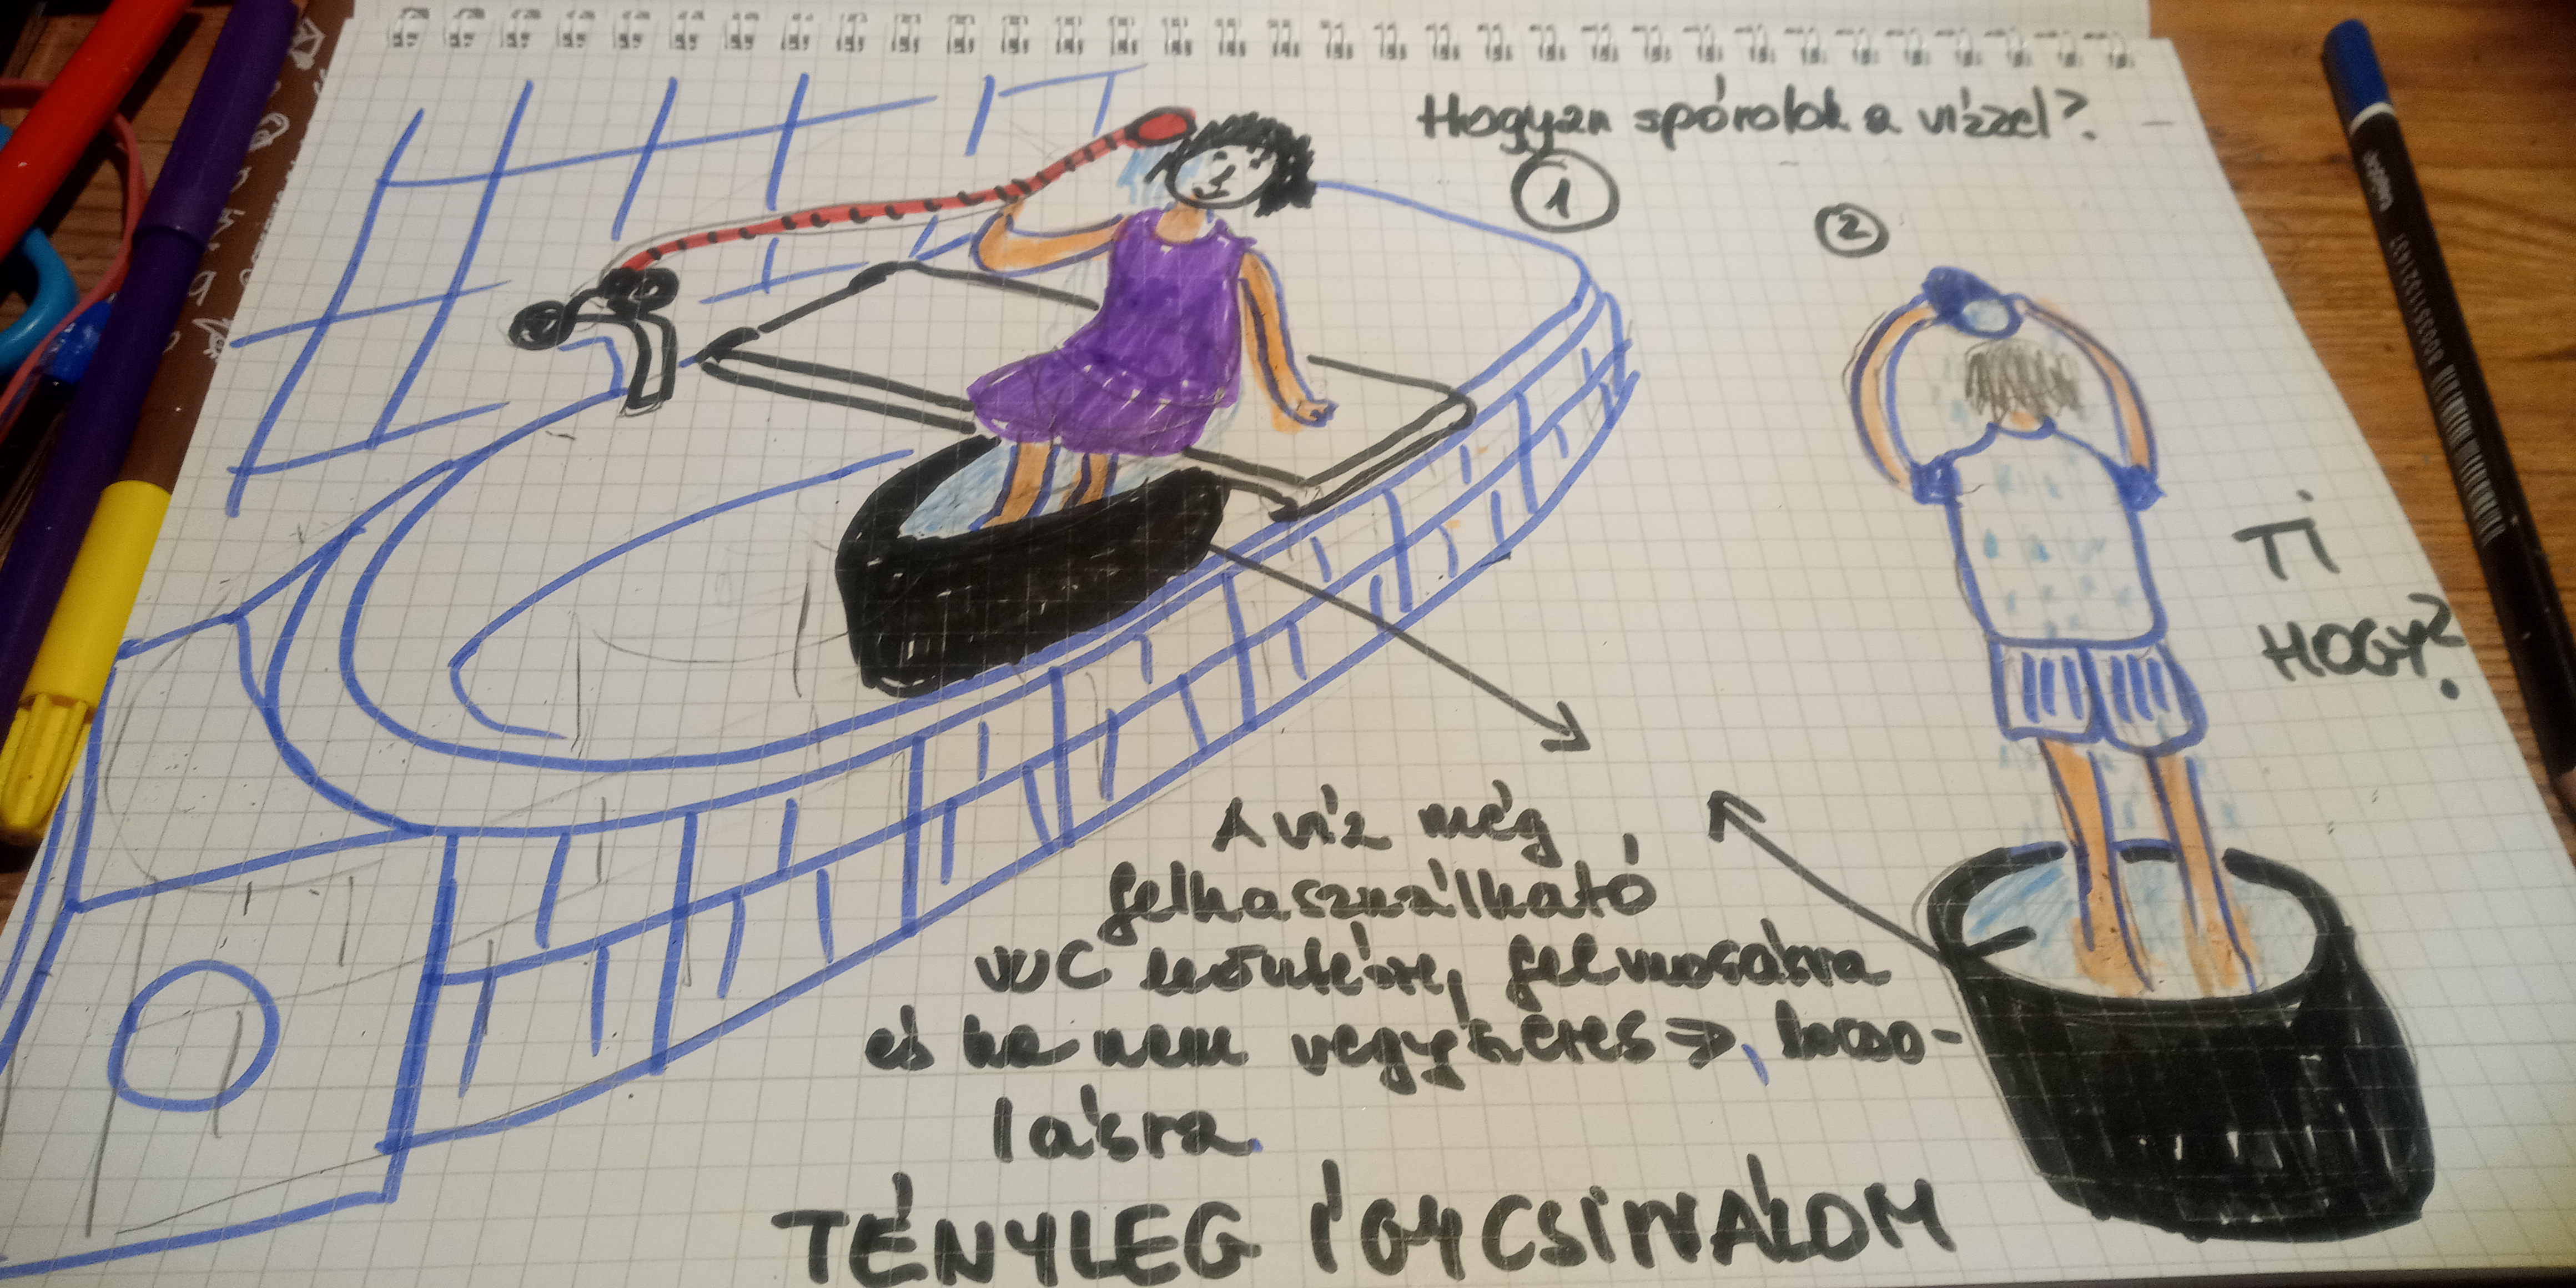 Hogyan spórolok a vízzel?
1
2
TI
HOGY?
A víz még
felhasználható
WC leöntésre, felmosásra
és ha nem vegyszeres ⇒, locso-
lásra
TÉNYLEG ÍGY CSINÁLOM